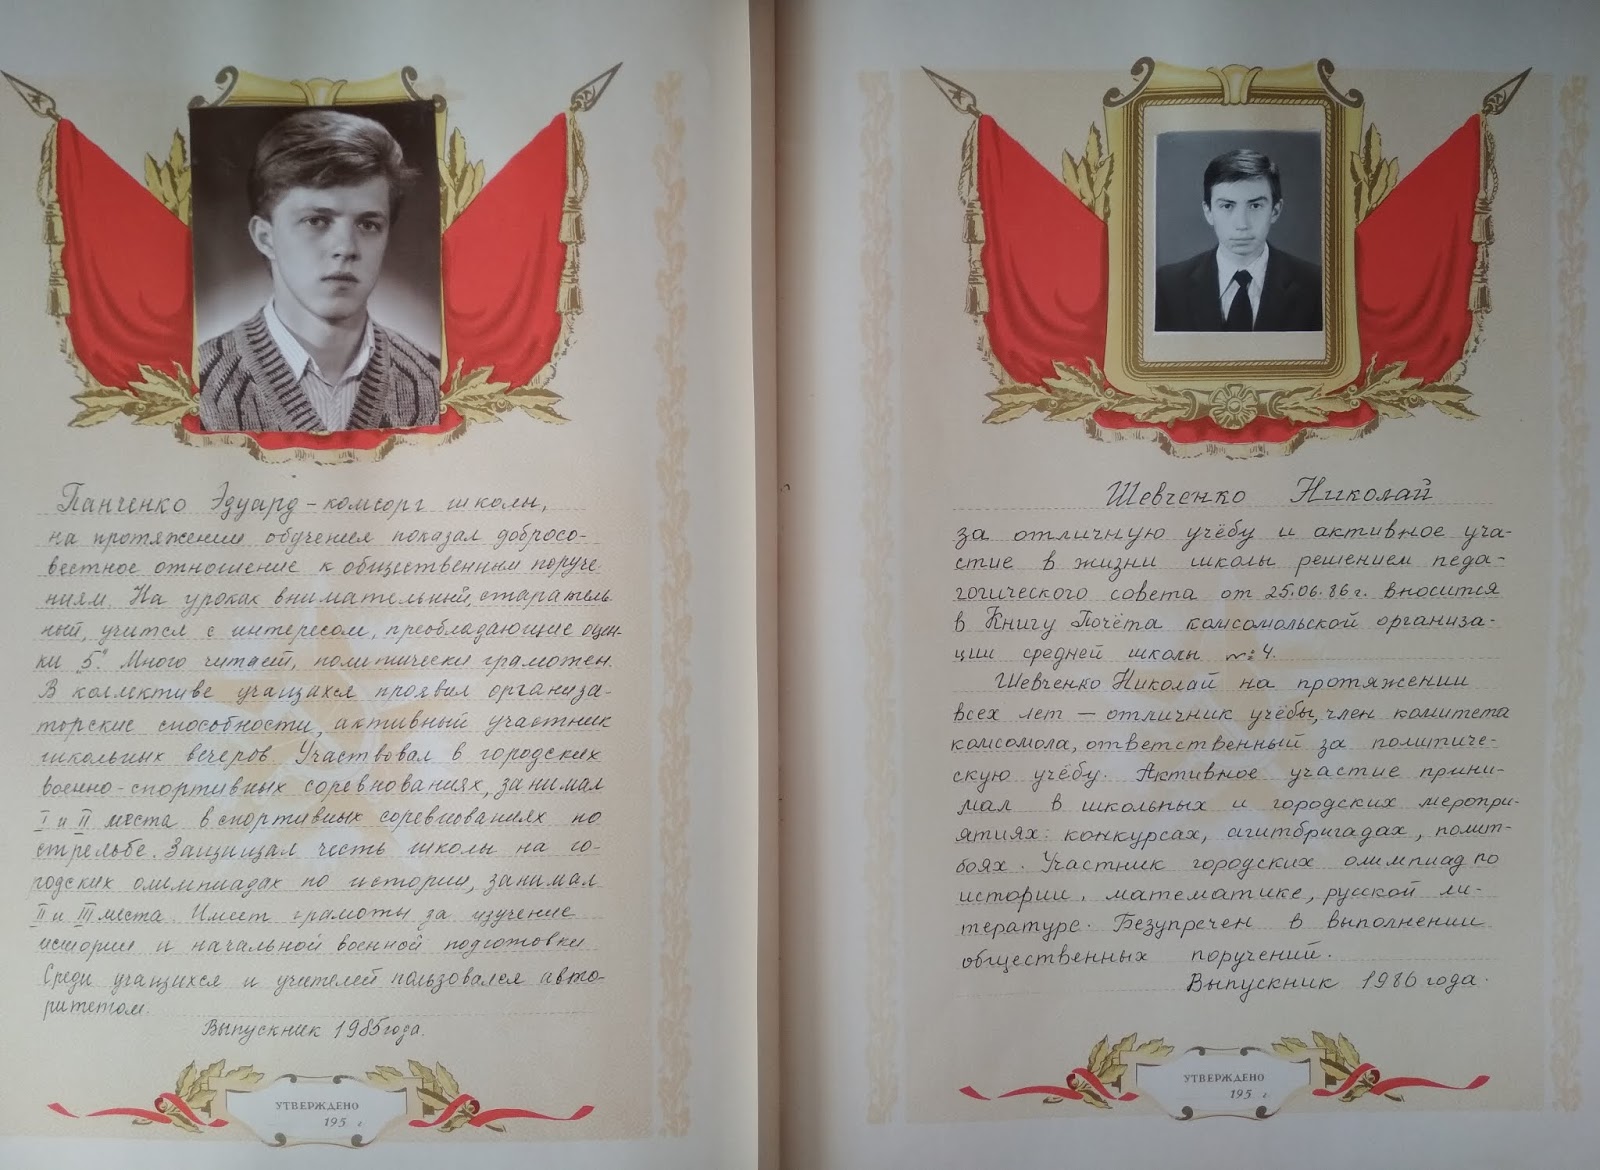 Панченко Эдуард – комсорг школы,
на протяжении обучения показал добросо-
вестное отношение к общественным поруче
ниям. На уроках внимательный, старатель
ный, учится с интересом, преобладающие оцен-
ки „5". Много читает, политически грамотен.
В коллективе учащихся проявил организа-
торские способности, активный участник
школьных вечеров. Участвовал в городских
военно-спортивных соревнованиях, занимал
I и II места в спортивных соревнованиях по
стрельбе. Защищал честь школы на го-
родских олимпиадах по истории, занимал
II и III места. Имеет грамоты за изучение
истории и начальной военной подготовки
Среди учащихся и учителей пользовался авто-
ритетом.
Выпускник 1985 года.
УТВЕРЖДЕНО
195 г.
Шевченко Николай
за отличную учёбу и активное уча-
стие в жизни школы решением педа-
гогического совета от 25.06.86 г. вносится
в Книгу Почёта комсомольской организа-
ции средней школы №4.
Шевченко Николай на протяжении
всех лет — отличник учёбы, член комитета
комсомола, ответственный за политиче-
скую учёбу. Активное участие прини-
мал в школьных и городских меропри-
ятиях: конкурсах, агитбригадах, полит-
боях. Участник городских олимпиад по
истории, математике, русской ли-
тературе. Безупречен в выполнении
общественных поручений.
Выпускник 1986 года.
УТВЕРЖДЕНО
195 г.